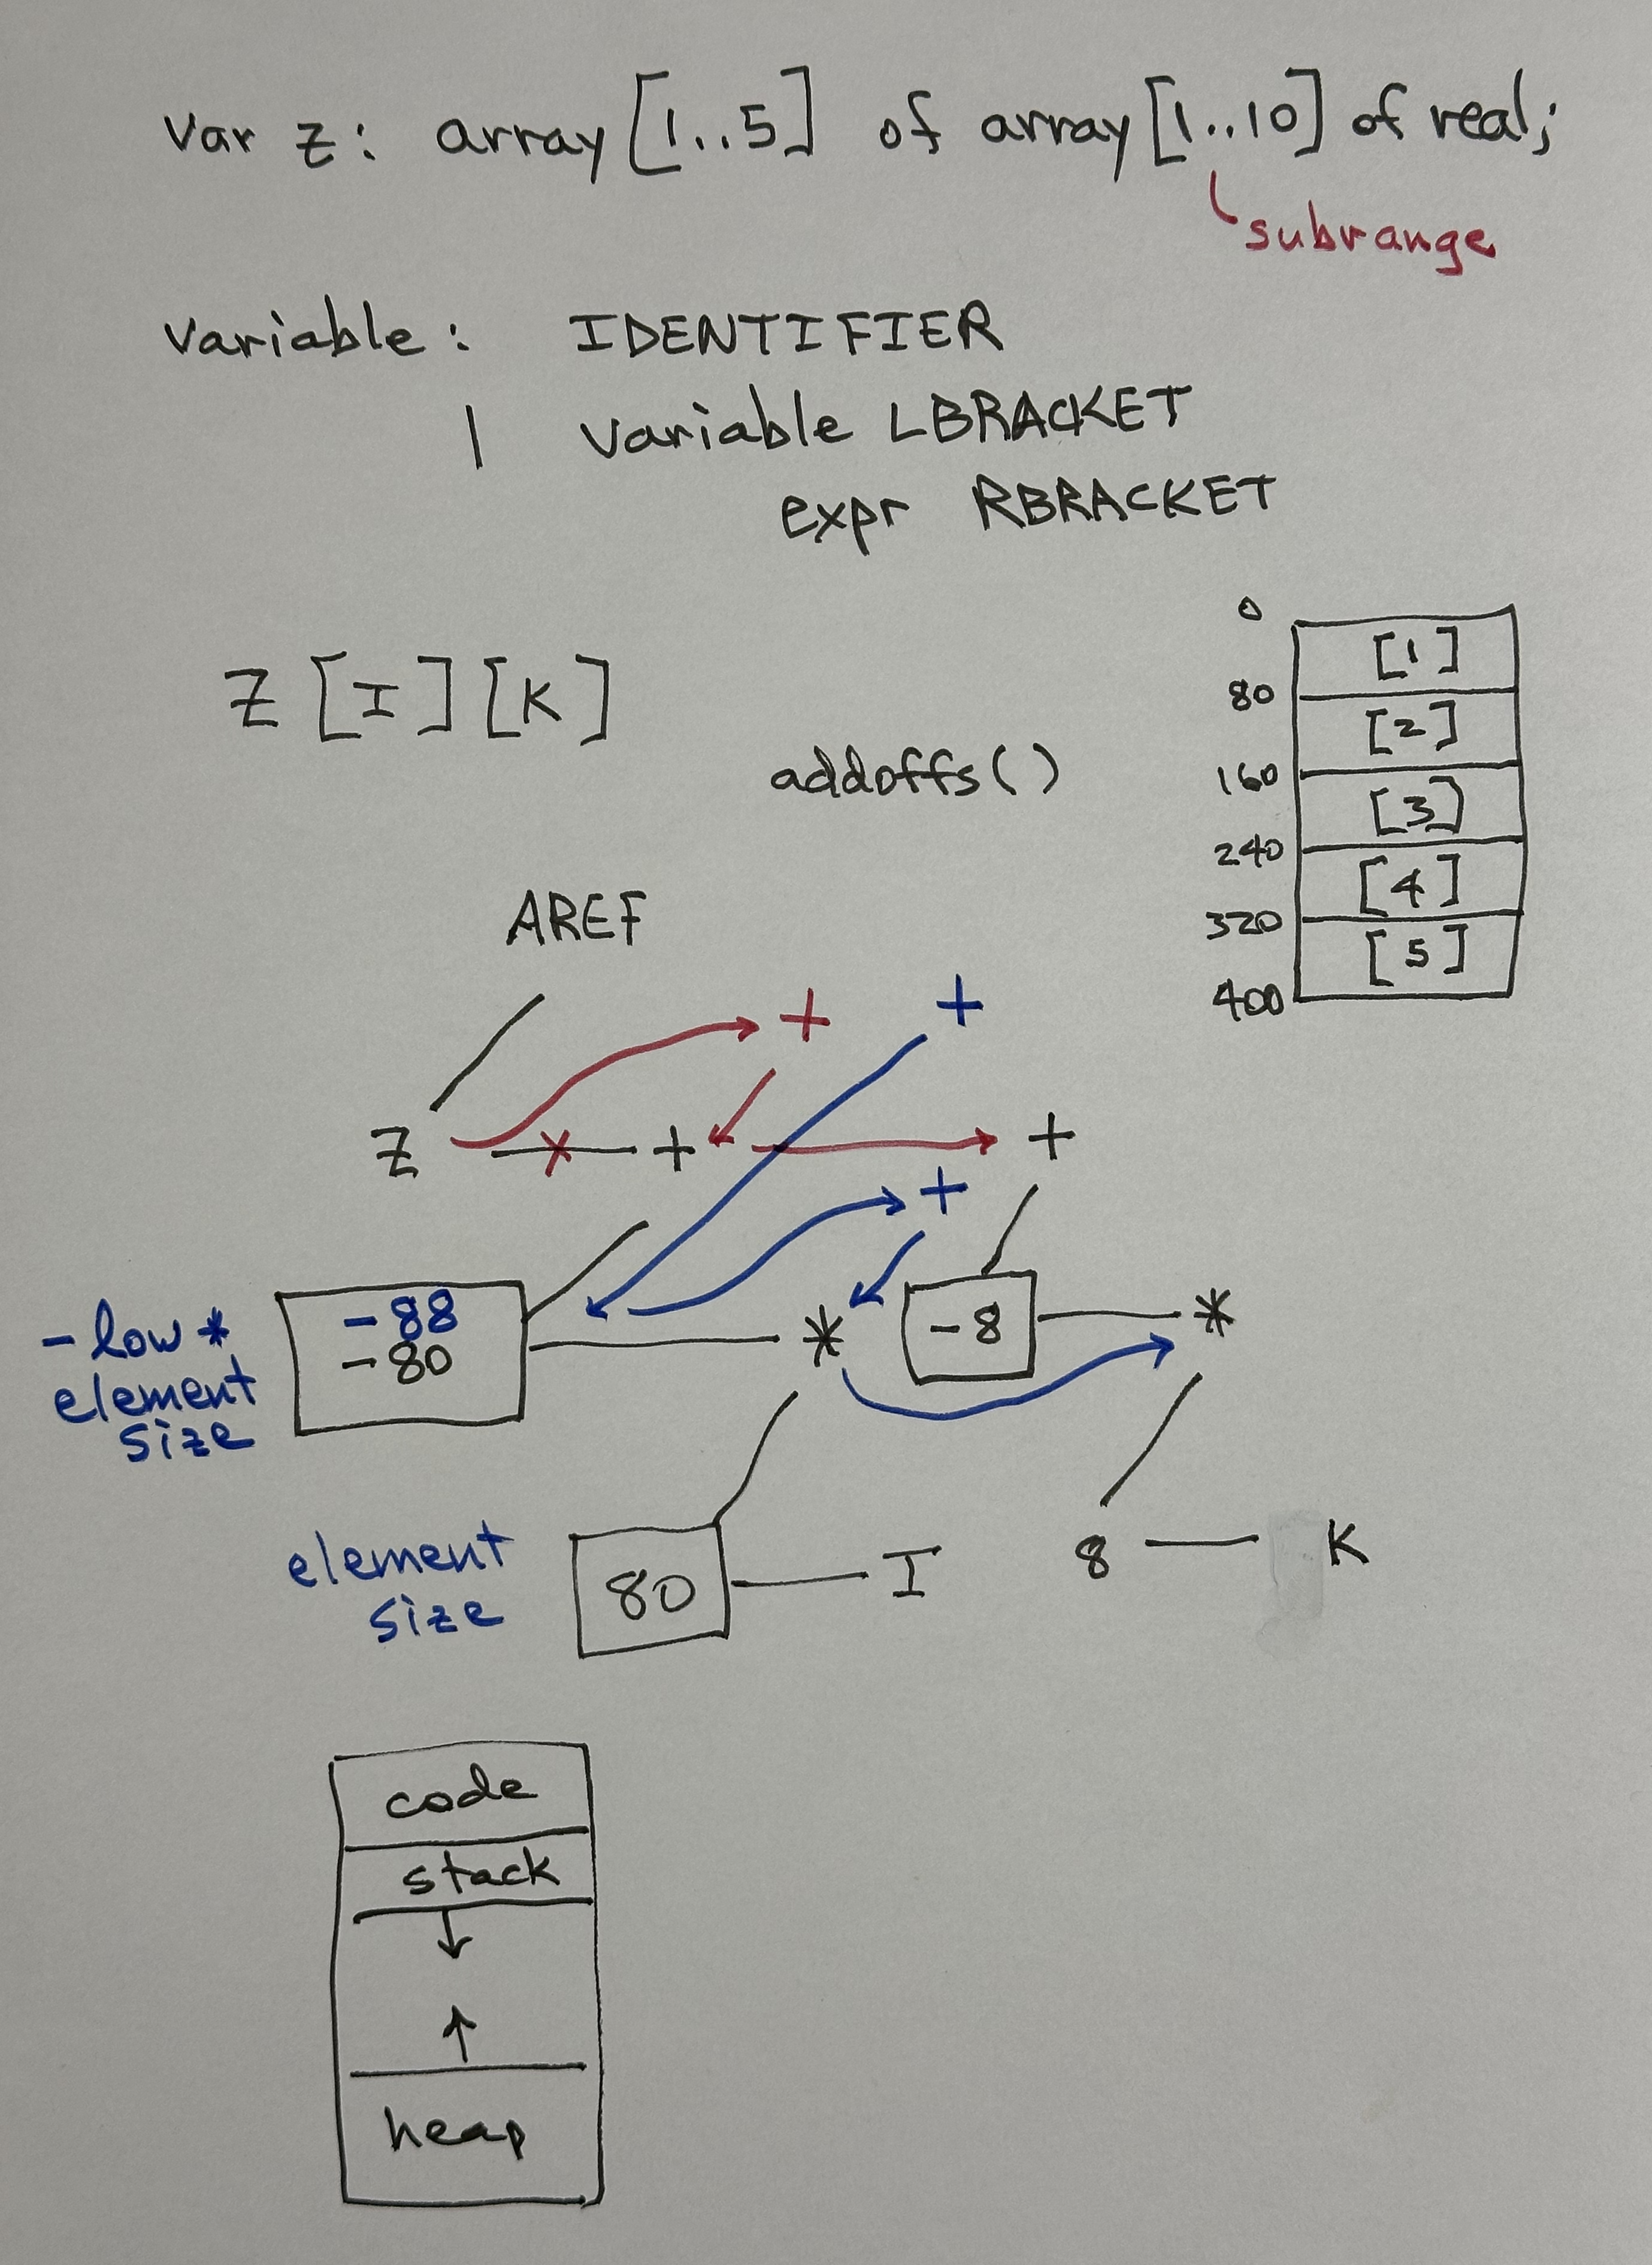 var z: array [1..5] of array [1..10] of real;
subrange
variable: IDENTIFIER
| variable LBRACKET
expr RBRACKET
0
[1]
80
Z [I] [K]
[2]
addoffs()
160
[3]
240
[4]
AREF
320
[5]
400
+ +
Z x + +
+
-88
-80
- low *
element
size
* -8 *
element
size
80 I
8 K
code
stack
heap